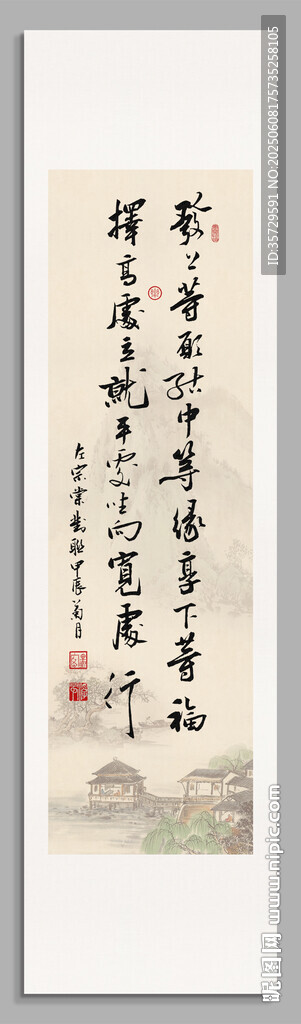 發上等願結中等緣享下等福
擇高處立就平處坐向寬處行
左宗棠對聯甲辰菊月
ID:35729591 NO:20250608175735258105
昵图网 www.nipic.com